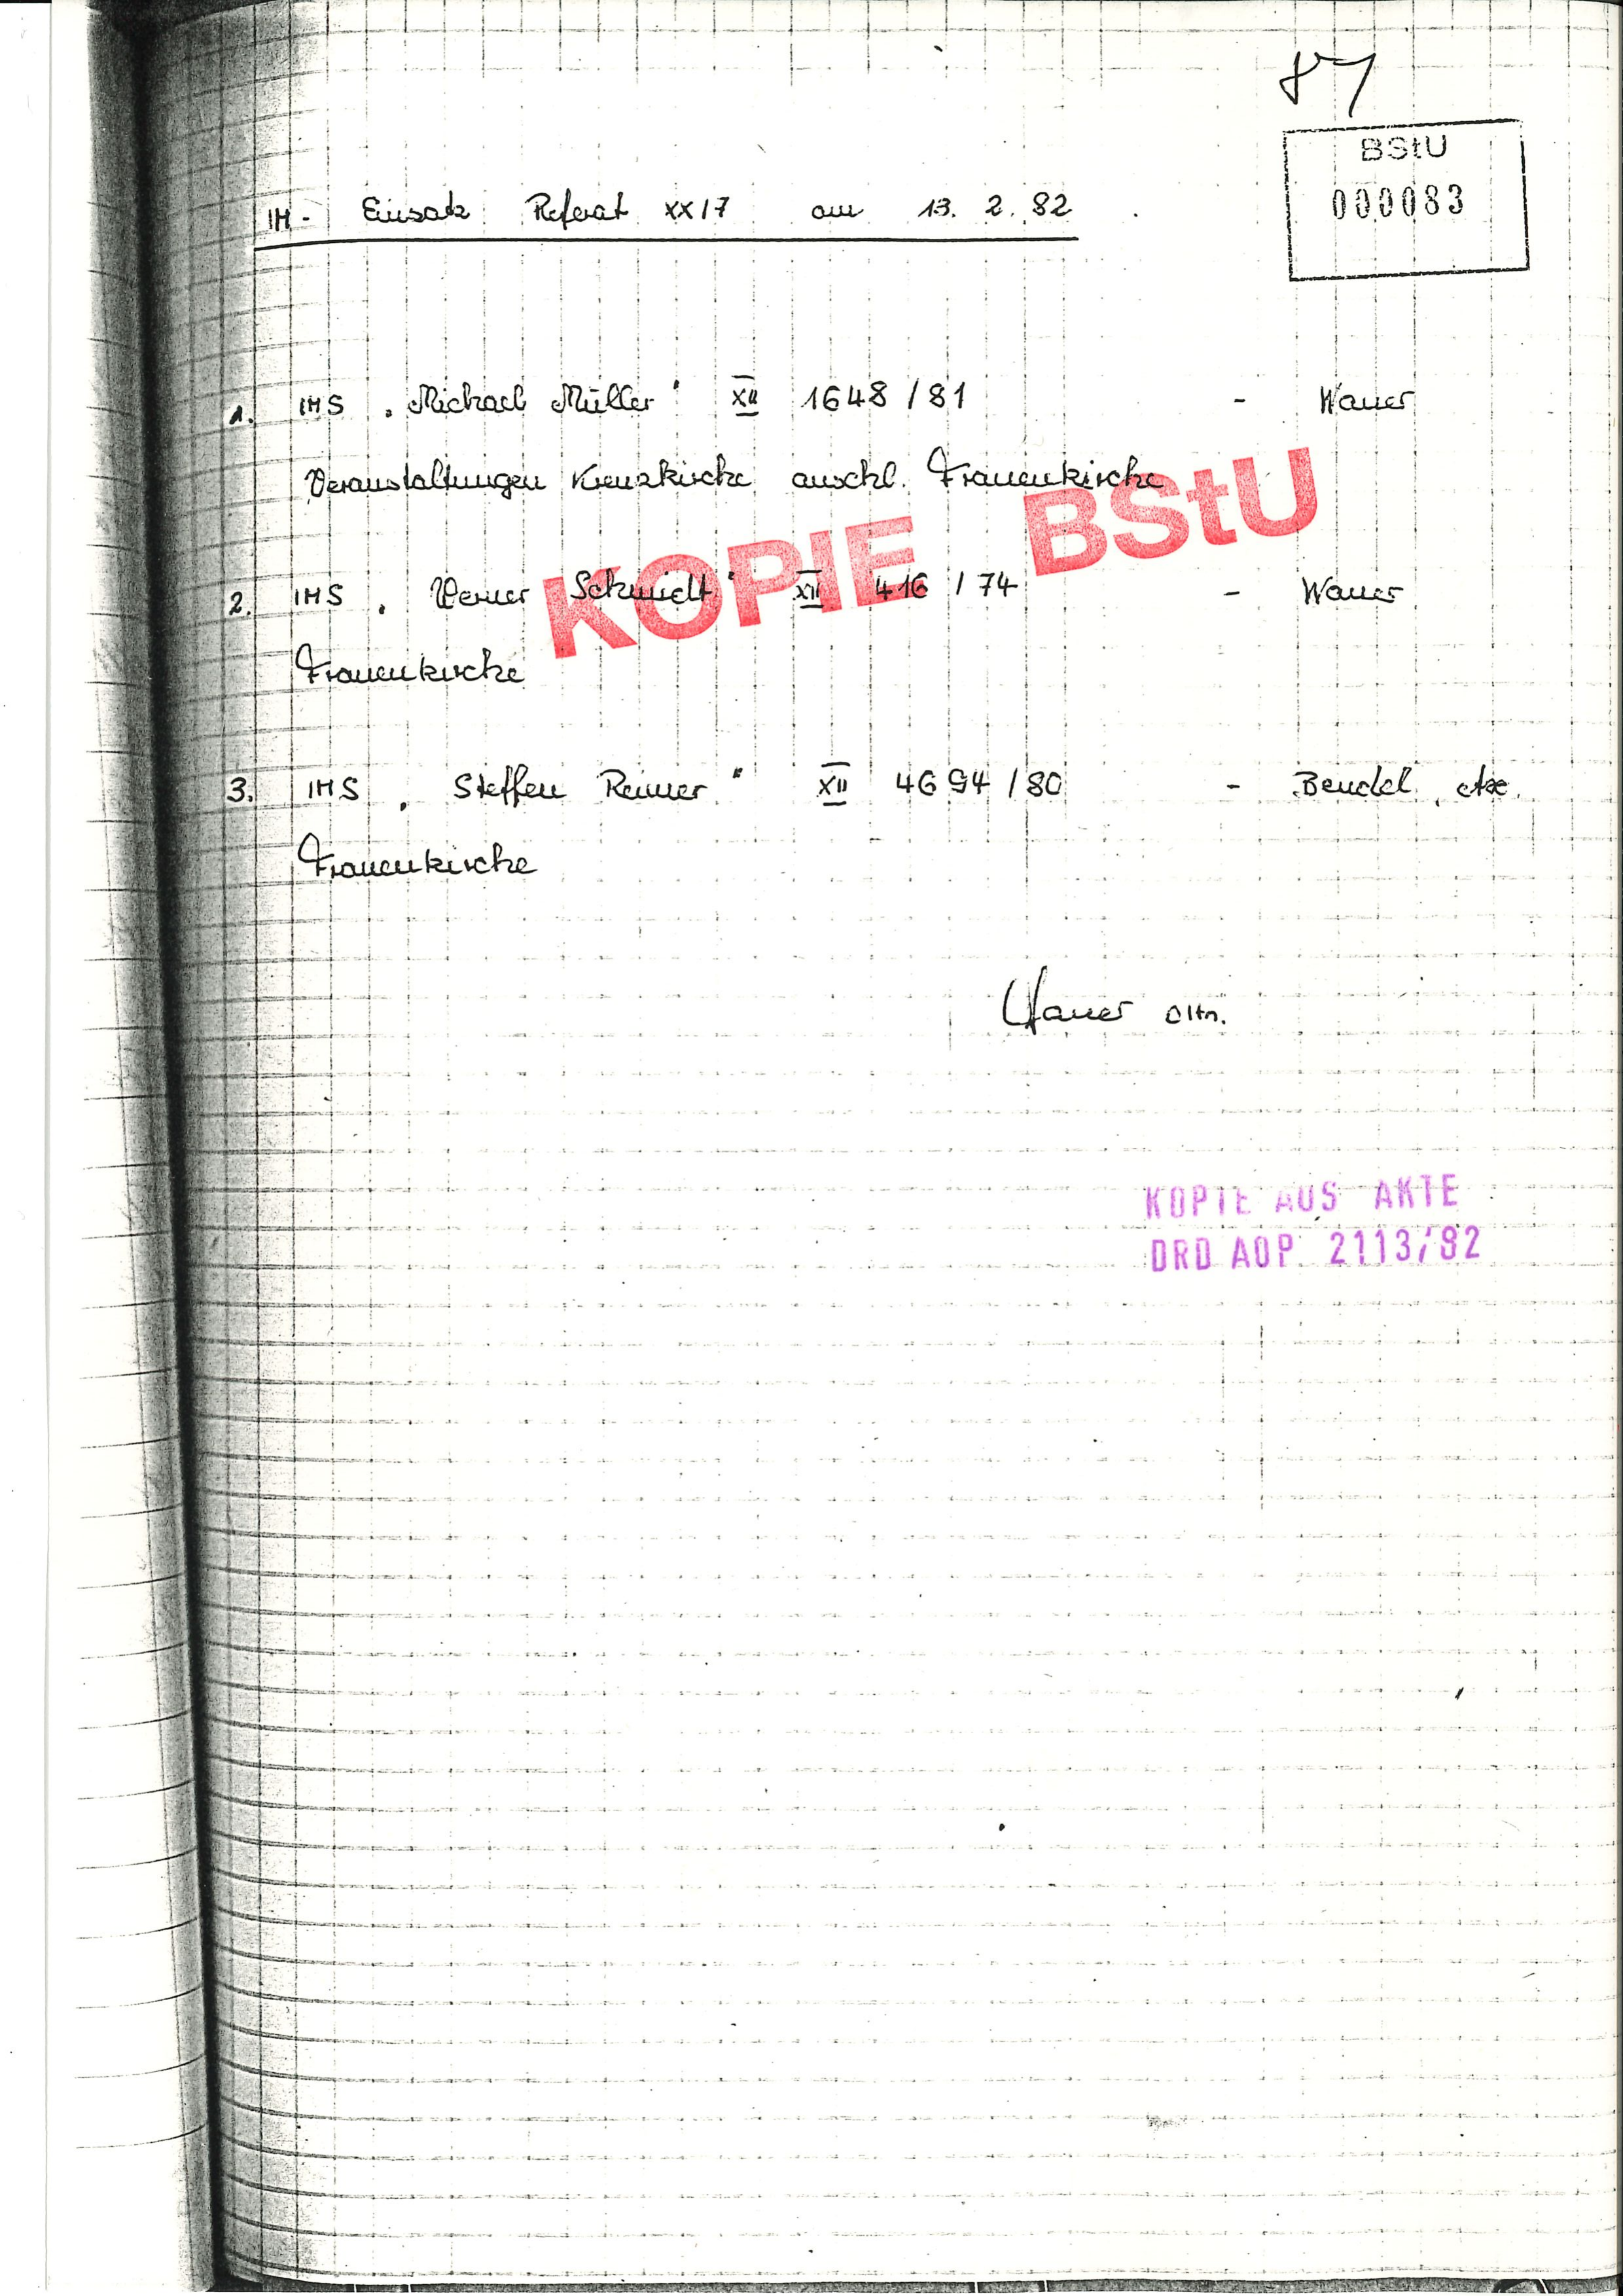 87
BStU
000083
IM - Einsatz Referat XX/7 am 13. 2. 82
1. IMS "Michael Müller" XII 1648 / 81 - Wauer
Veranstaltungen Kreuzkirche anschl. Frauenkirche
KOPIE BStU
2. IMS "Werner Schmidt" XII 416 / 74 - Wauer
Frauenkirche
3. IMS "Steffen Reimer" XII 4694 / 80 - Bendel
Frauenkirche
Wauer Oltn.
KOPIE AUS AKTE
DRD AOP 2113/82